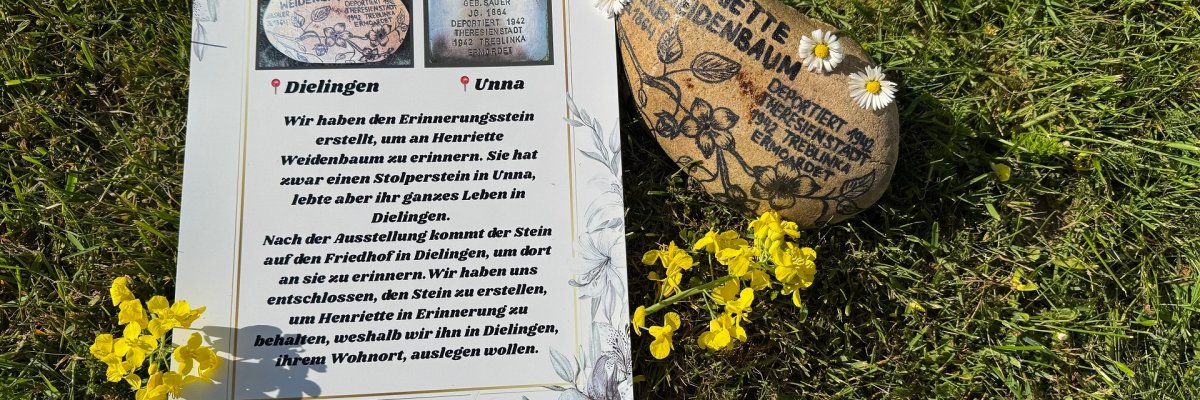 WEIDENBAUM
DEPORTIERT
1942 TREBLINKA
ERMORDET
GEB. SAUER
JG. 1864
DEPORTIERT 1942
THERESIENSTADT
1942 TREBLINKA
ERMORDET
Dielingen
Unna
Wir haben den Erinnerungsstein
erstellt, um an Henriette
Weidenbaum zu erinnern. Sie hat
zwar einen Stolperstein in Unna,
lebte aber ihr ganzes Leben in
Dielingen.
Nach der Ausstellung kommt der Stein
auf den Friedhof in Dielingen, um dort
an sie zu erinnern. Wir haben uns
entschlossen, den Stein zu erstellen,
um Henriette in Erinnerung zu
behalten, weshalb wir ihn in Dielingen,
ihrem Wohnort, auslegen wollen.
WEIDENBAUM
1864
DEPORTIERT 1942
THERESIENSTADT
1942 TREBLINKA
ERMORDET